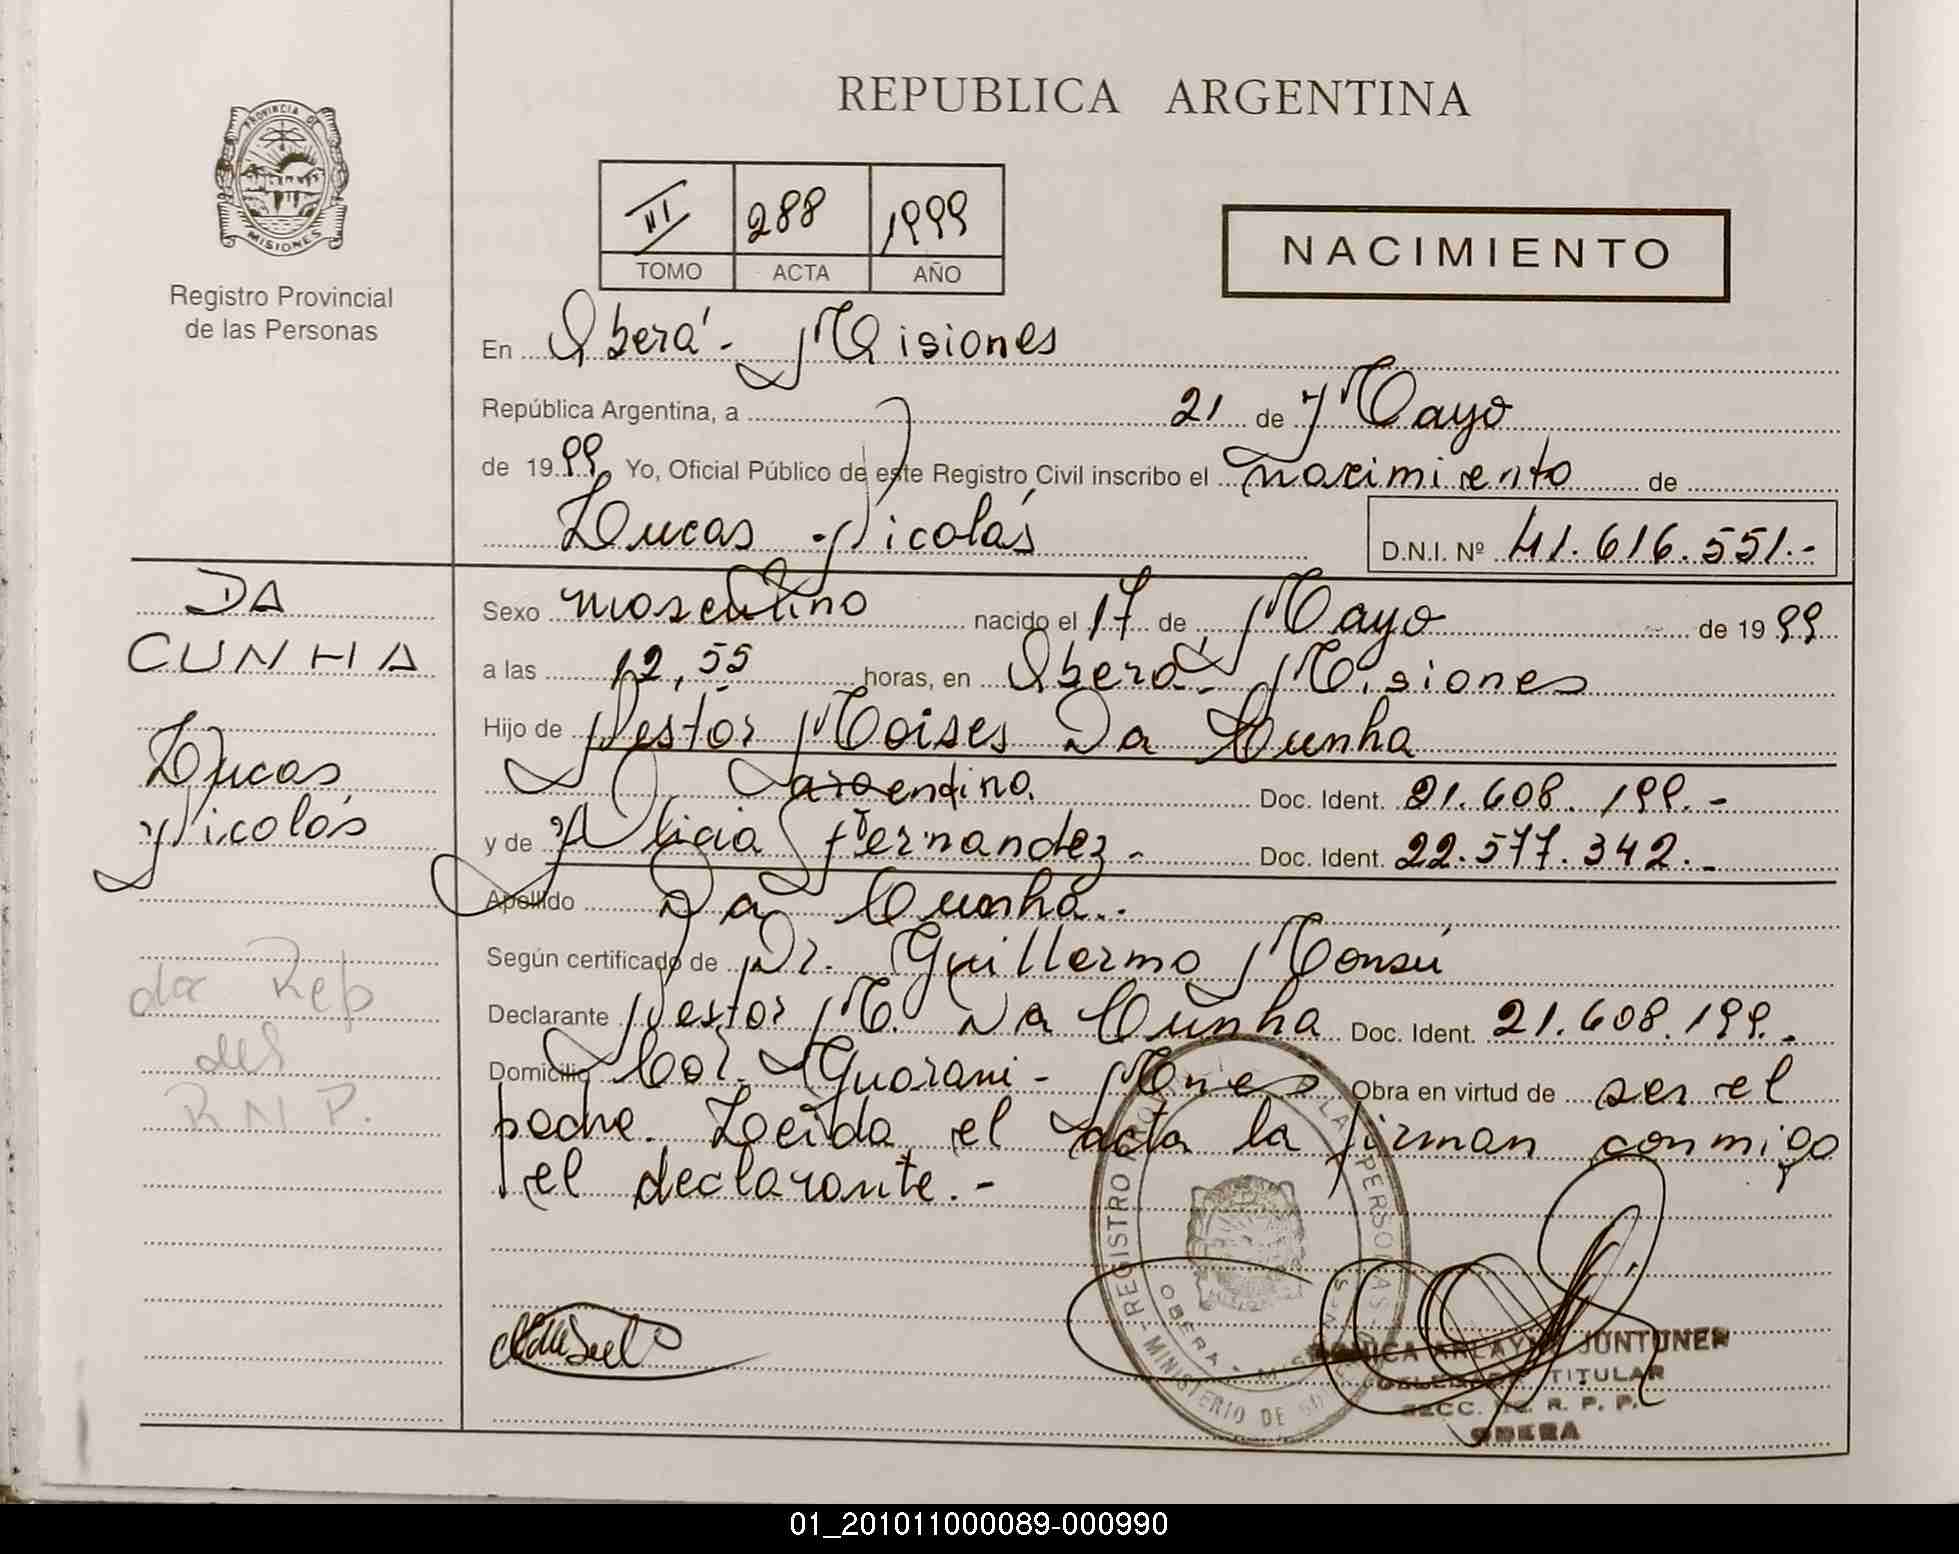 PROVINCIA DE
MISIONES
Registro Provincial
de las Personas
REPUBLICA ARGENTINA
III 288 1999
TOMO ACTA AÑO
NACIMIENTO
En Oberá - Misiones
República Argentina, a 21 de Mayo
de 1999 Yo, Oficial Público de este Registro Civil inscribo el nacimiento de
Lucas Nicolás D.N.I. Nº 41.616.551.-
DA
CUNHA
Lucas
Nicolás
da Rep
del
R N P.
Sexo masculino nacido el 17 de Mayo de 1999
a las 12,55 horas, en Oberá - Misiones
Hijo de Nestor Moises Da Cunha
argentino. Doc. Ident. 21.608.199.-
y de Alicia Fernandez - Doc. Ident. 22.577.342.-
Apellido Da Cunha.-
Según certificado de Dr. Guillermo Monsú
Declarante Nestor M. Da Cunha Doc. Ident. 21.608.199.-
Domicilio Col. Guarani - Mnes Obra en virtud de ser el
padre. Leida el acta la firman conmigo
el declarante.-
REGISTRO PERSONAS
MINISTERIO DE
OBERA
JUNTUNEN
TITULAR
SECC. R. P. P.
OBERA
01_201011000089-000990